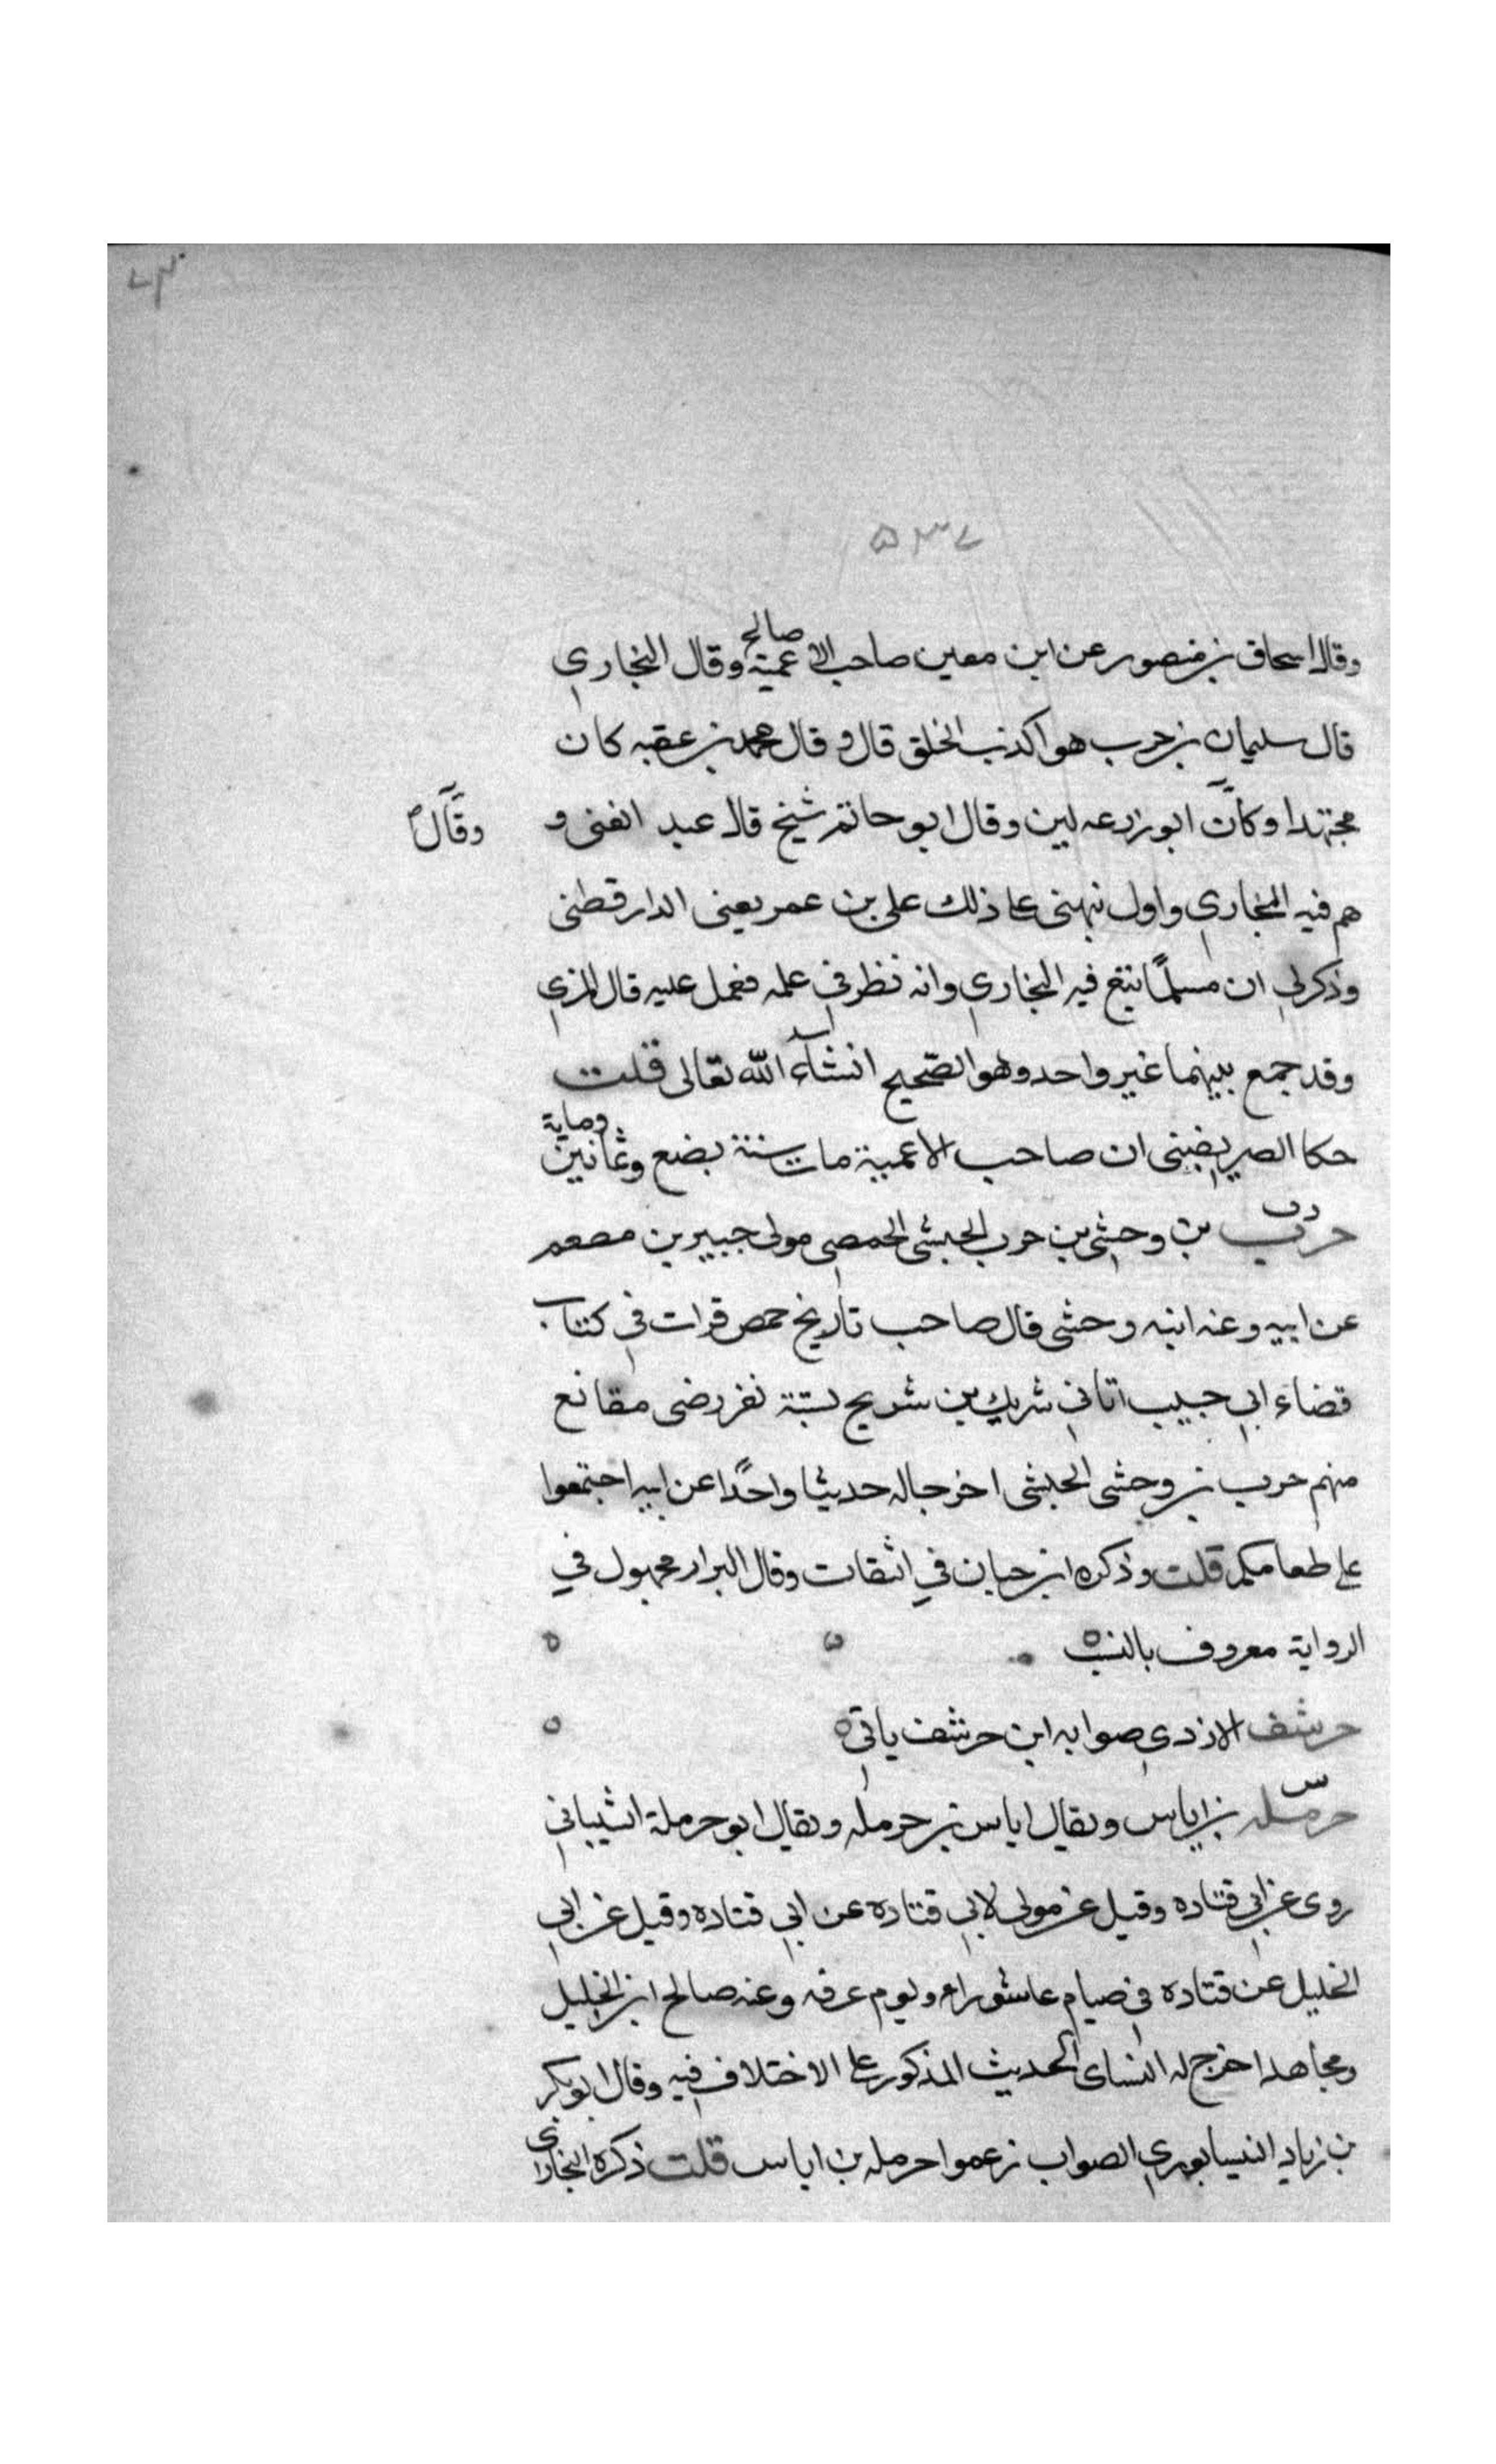 ٥٣٧
وقال اسحاق بن منصور عن ابن معين صاحب الاعمية صالح وقال البخاري
قال سليمان بن حرب هو اكذب الخلق قال و قال محمد بن عقبه كان
مجتهدا وكان ابو زرعه لين وقال ابو حاتم شيخ قال عبد الغنى و
وقال
هم فيه البخاري واول نبهني على ذلك على بن عمر يعنى الدارقطنى
وذكر لي ان مسلمًا تبع فيه البخاري وانه نظر في علمه فعمل عليه قال المزي
وقد جمع بينهما غير واحد وهو الصحيح انشآء الله تعالى قلت
حكا الصريفينى ان صاحب الاعمية مات سنة بضع وثمانين ومايه
حرب بن وحشي بن حرب الحبشى الحمصي مولى جبير بن مطعم
عن ابيه وعنه ابنه وحشى قال صاحب تاريخ حمص قرات في كتاب
قضاء ابي حبيب اتاني شريك بن شريح بستة نفر رضى مقانع
منهم حرب بن وحشى الحبشى اخرجا له حديثا واحدًا عن ابيه اجتمعوا
على طعامكم قلت وذكره ابن حبان في الثقات وقال البزار مجهول في
الرواية معروف بالنسب
حرشف الازدي صوابه ابن حرشف ياتي
حرمله بن اياس ويقال اياس بن حرمله ويقال ابو حرملة الشيباني
روى عن ابي قتاده وقيل عن مولى لابي قتادة عن ابي قتاده وقيل عن ابي
الخليل عن قتاده في صيام عاشوراء ويوم عرفه وعنه صالح ابن الخليل
ومجاهد اخرج له النساى الحديث المذكور على الاختلاف فيه وقال ابو بكر
بن زياد النيسابوري الصواب زعموا حرمله بن اياس قلت ذكره البخاري